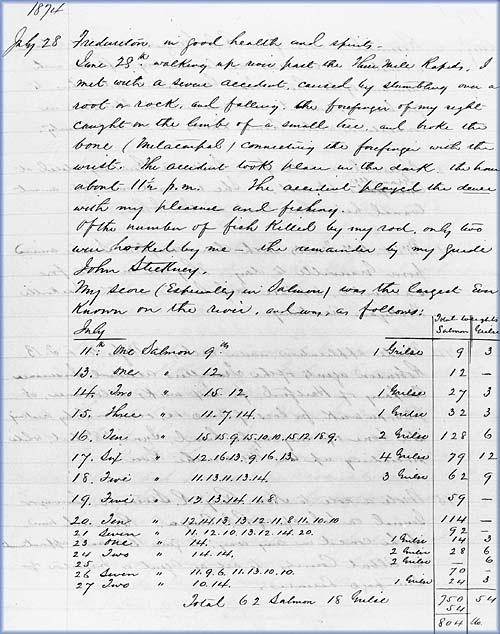 1874
July 28 Fredericton, in good health and spirits.
June 28th walking up river past the Three Mile Rapids, I
met with a severe accident, caused by stumbling over a
root or rock, and falling. the forefinger of my right
caught on the limb of a small tree, and broke the
bone (Metacarpal) connecting the forefinger with the
wrist. The accident took place in the dark. the hour
about 11½ p.m. The accident played the deuce
with my pleasure and fishing.
Of the number of fish killed by my rod, only two
were hooked by me – the remainder by my guide
John Stickney.
My score (Especially in Salmon) was the largest Ever
Known on the river, and was, as follows:
July Total Weights
Salmon Grilse
11th One Salmon 9 lbs 1 Grilse 9 3
13. One " 12. 12 –
14. Two " 15. 12. 1 Grilse 27 3
15. Three " 11. 7. 14. 1 Grilse 32 3
16. Ten " 15. 15. 9. 15. 10. 10. 15. 12. 18. 9. 2 Grilse 128 6
17. Six " 12. 16. 13. 9. 16. 13. 4 Grilse 79 12
18. Five " 11. 13. 11. 13. 14. 3 Grilse 62 9
19. Five " 13. 13. 14. 11. 8. 59 –
20. Ten " 12. 14. 13. 13. 12. 11. 8. 11. 10. 10 114 –
21 Seven " 11. 12. 10. 13. 12. 14. 20. 92 –
23 One " 14. 1 Grilse 14 3
24 Two " 14. 14. 2 Grilse 28 6
25 2 Grilse 6
26 Seven " 11. 9. 6. 11. 13. 10. 10. 70 –
27 Two " 10. 14. 1 Grilse 24 3
Total 62 Salmon 18 Grilse 750 54
54
804 lbs.